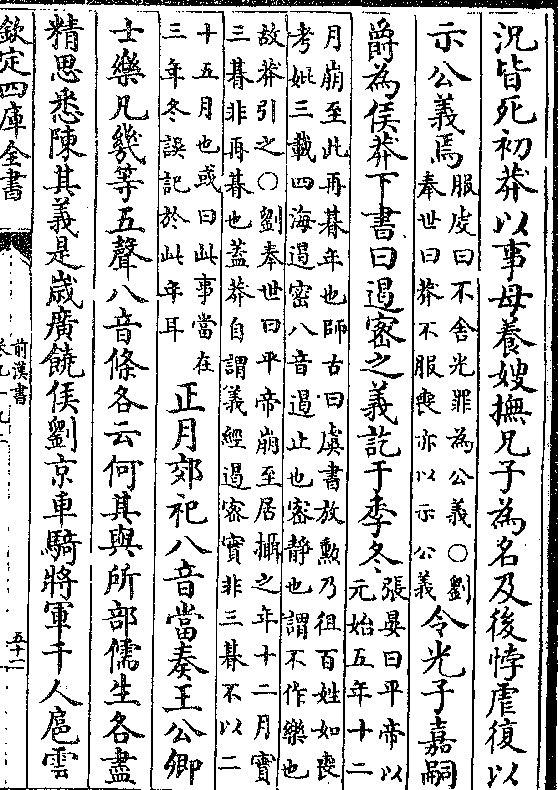 況皆死初莽以事母養嫂撫兄子為名及後悖虐復以
示公義焉
服虔曰不舍光罪為公義〇劉
奉世曰莽不服喪亦以示公義
令光子嘉嗣
爵為侯莽下書曰遏密之義訖于季冬
張晏曰平帝以
元始五年十二
月崩至此再朞年也師古曰虞書放勲乃徂百姓如喪
考妣三載四海遏密八音遏止也密靜也謂不作樂也
故莽引之〇劉奉世曰平帝崩至居攝之年十二月實
三朞非再朞也蓋莽自謂義經遏密實非三朞不以二
十五月也或曰此事當在
三年冬誤記於此年耳
正月郊祀八音當奏王公卿
士樂凡幾等五聲八音條各云何其與所部儒生各盡
精思悉陳其義是歲廣饒侯劉京車騎將軍千人扈雲
欽定四庫全書
前漢書
五十二